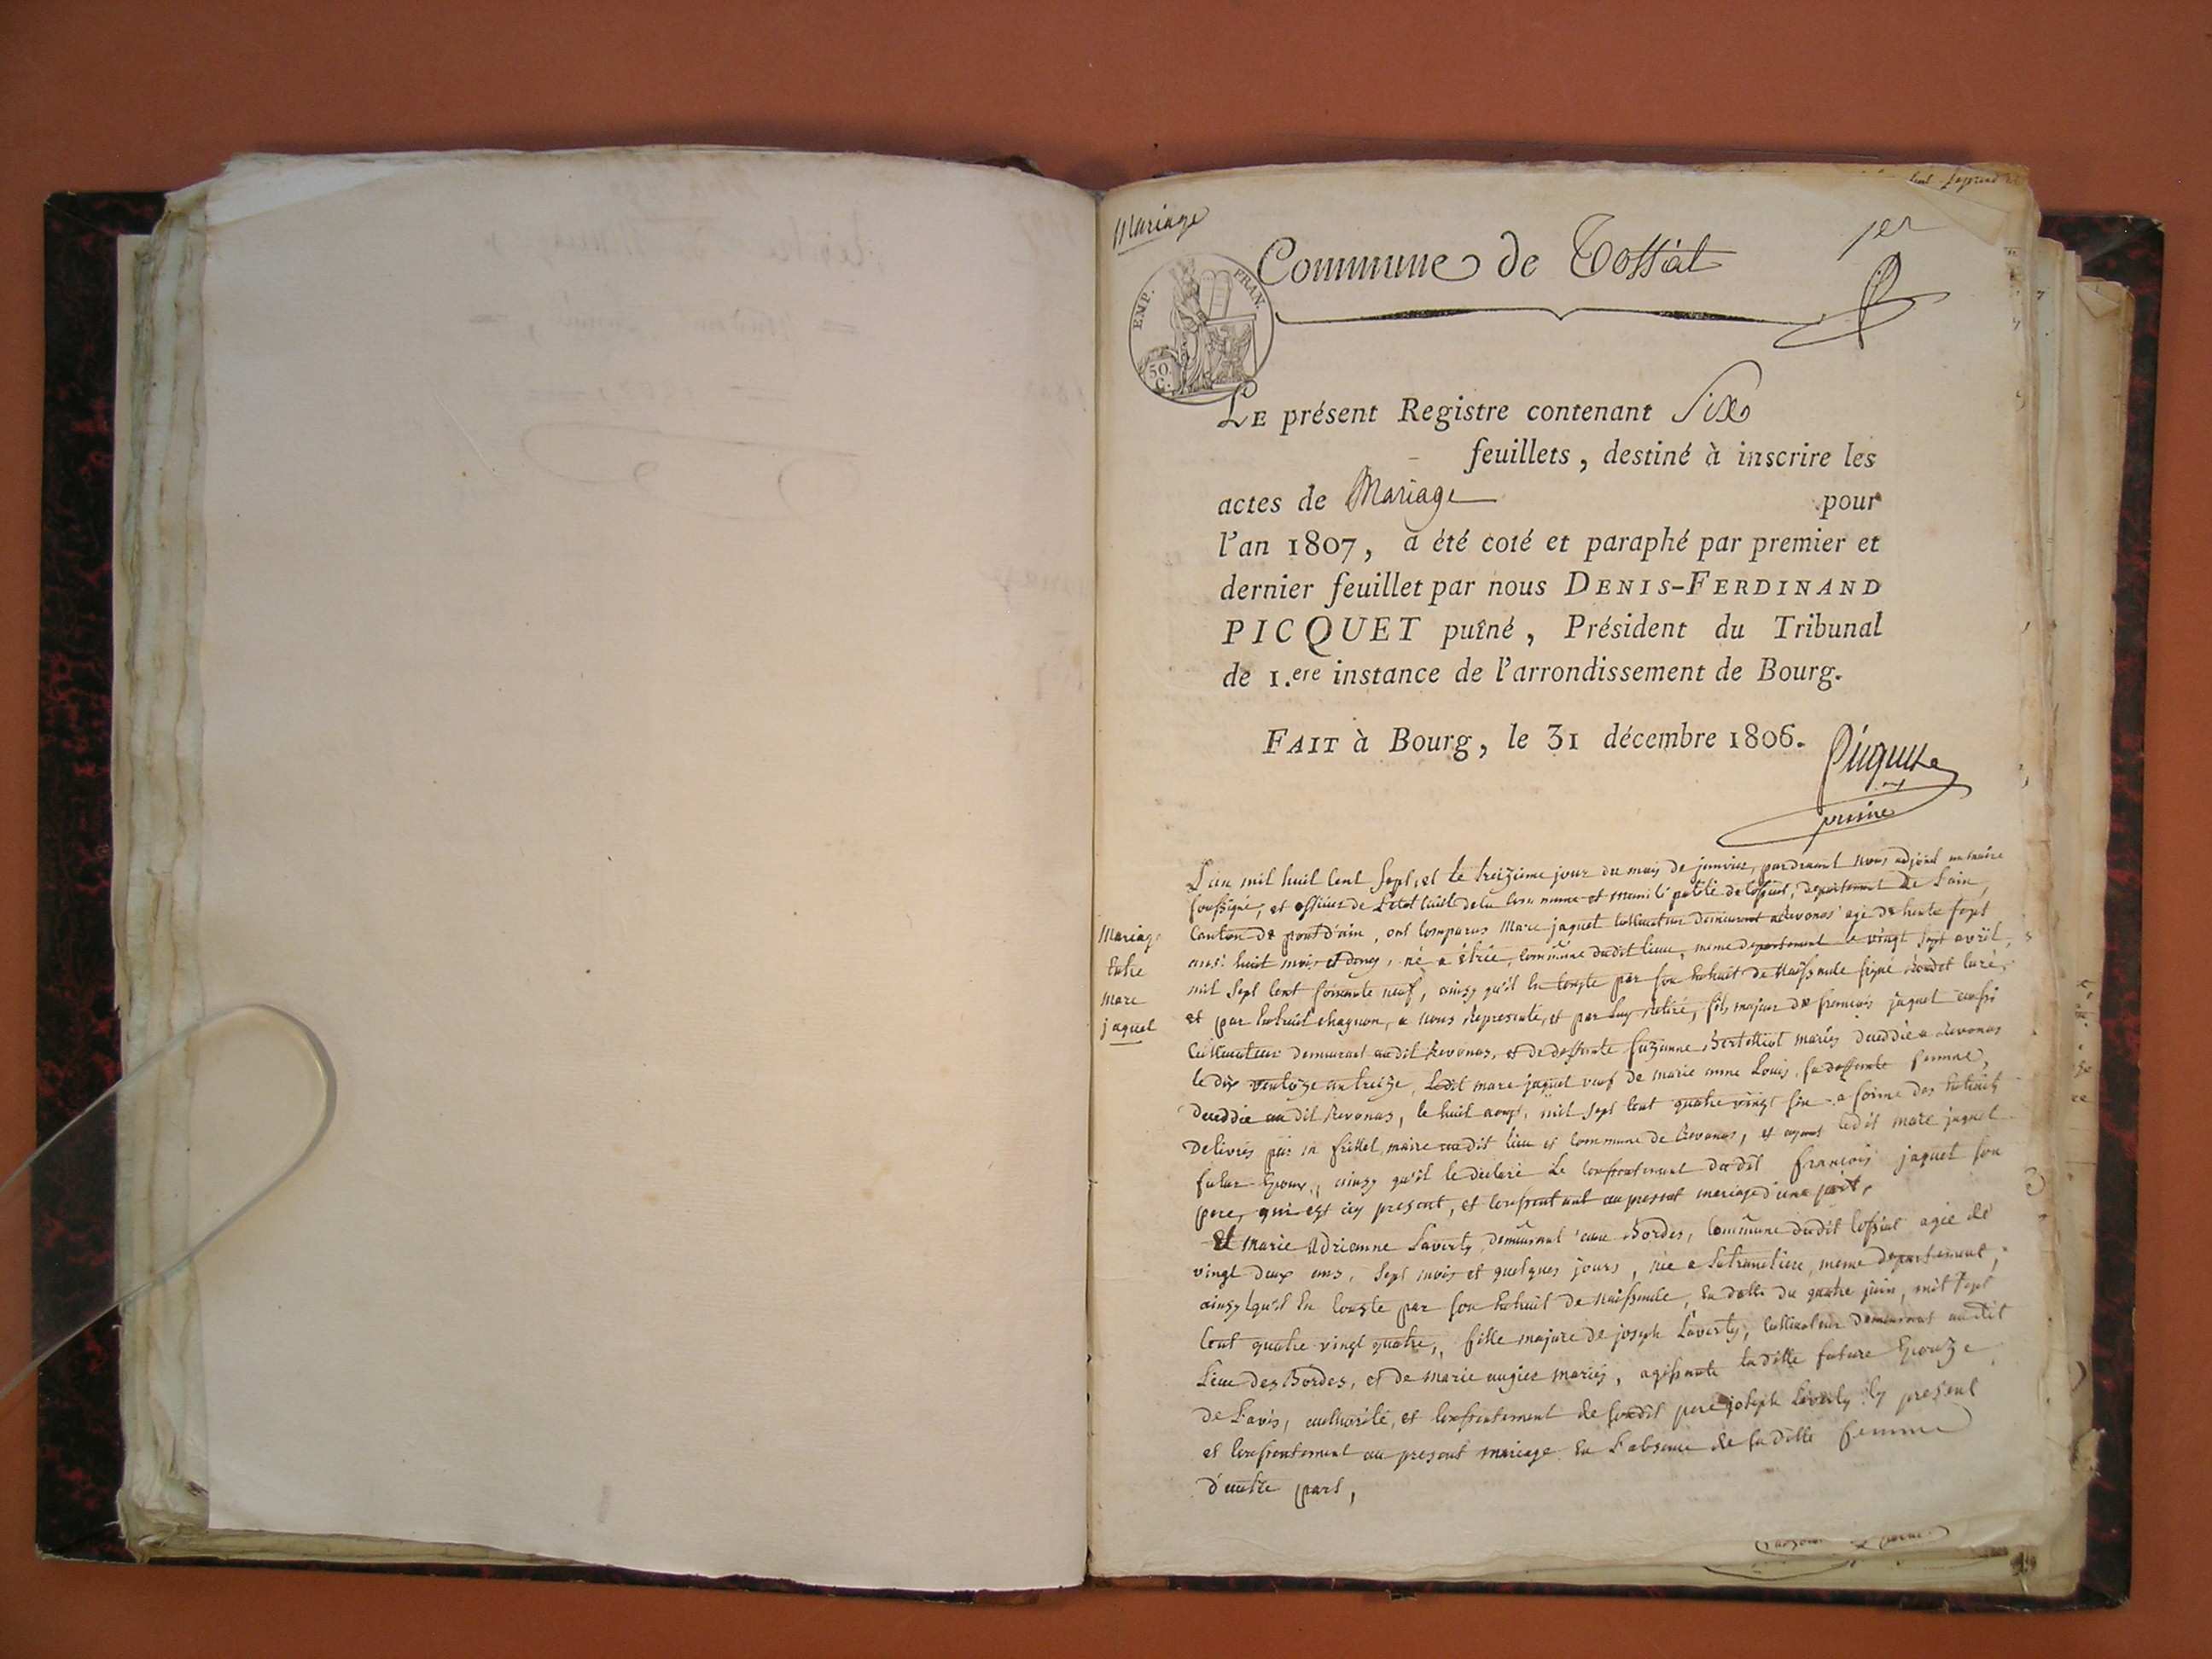 Mariage
Commune de Tossiat
1er
EMP. FRAN.
50 C.
LE présent Registre contenant Six
feuillets, destiné à inscrire les
actes de Mariage pour
l'an 1807, a été coté et paraphé par premier et
dernier feuillet par nous DENIS-FERDINAND
PICQUET puîné, Président du Tribunal
de 1.ere instance de l'arrondissement de Bourg.
FAIT à Bourg, le 31 décembre 1806.
Picquet
puiné
Mariage
Entre
Marc
jaquet
L'an mil huit cent sept, et le treizieme jour du mois de janvier, pardevant nous adjoint au maire
soussigné, et officier de l'etat civil de la commune et de tossiat, departement de l'ain,
Canton de pont d'ain, ont comparus Marc jaquet cultivateur demeurant a Revonas agé de trente sept
ans huit mois et, né a, commune dudit lieu, meme departement le vingt sept avril,
mil sept cent soixante neuf, ainsy qu'il en conste par son Extrait de Naissance signé curé,
et par Extrait chagnon, a nous Representé, et par luy Retiré, fils majeur de francois jaquet aussi
Cultivateur demeurant audit Revonas, et de deffunte suzanne mariés deceddée a Revonas
le dix ventoze an treize, Ledit marc jaquet veuf de marie anne Louis, sa deffunte femme,
deceddée audit Revonas, le huit, mil sept cent quatre vingt a forme des Extraits
Delivrés par maire audit lieu et commune de Revonas, et ayant ledit marc jaquet
futur Epoux, ainsy qu'il le declare le consentement dudit francois jaquet son
pere, qui est icy present, et consentant au present mariage d'une part,
Et marie Adrienne Laverty demeurant aux Bordes, Commune dudit tossiat agée de
vingt deux ans, sept mois et quelques jours, née a Latranclière, meme departement,
ainsy qu'il en conste par son Extrait de naissance, en datte du quatre juin, mil sept
cent quatre vingt quatre, fille majure de joseph Laverty, cultivateur demeurant audit
Lieu des Bordes, et de marie augier mariés, agissante laditte future Epouze
de l'avis, authorité, et consentement de sondit pere joseph Laverty icy present
et consentement au present mariage en l'absence de saditte femme
d'autre part,